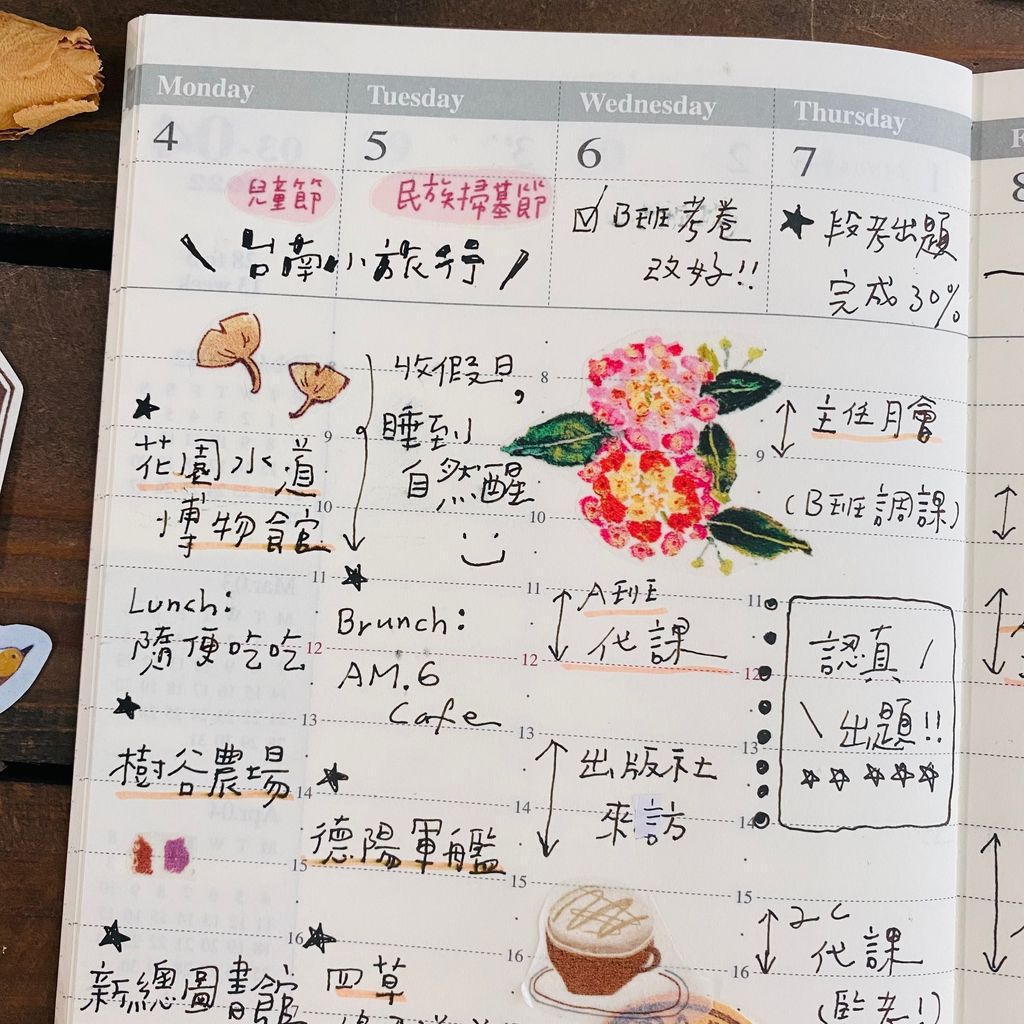 Monday
4
兒童節
Tuesday
5
民族掃墓節
\ 台南小旅行 /
Wednesday
6
☑ B班考卷
改好!!
Thursday
7
★ 段考出題
完成30%
8
★
花園水道
博物館
Lunch:
隨便吃吃
★
樹谷農場
★
新總圖書館
8
9
10
11
12
13
14
15
16
收假日,
睡到
自然醒
★
Brunch:
AM.6
Cafe
★
德陽軍艦
★
四草
8
10
11
12
13
14
15
16
A班
代課
出版社
來訪
9
11
12
13
14
15
16
主任月會
(B班調課)
認真/
\出題!!
☆☆☆☆☆
2C
代課
(監考!)